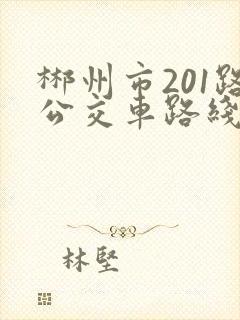 郴州市201路
公交車路綫
林堅